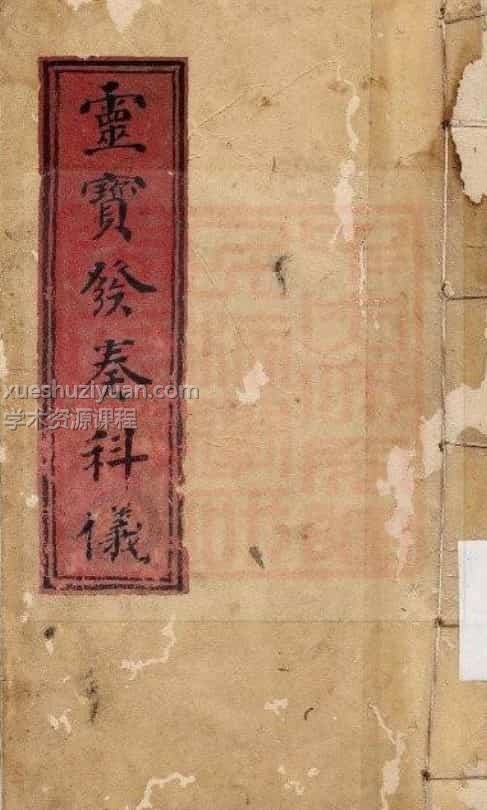 靈寶發奏科儀
xueshuziyuan.com
学术资源课程